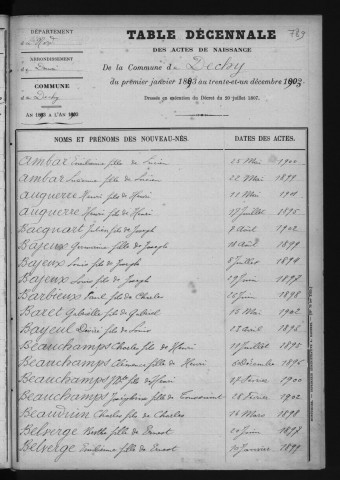 DÉPARTEMENT
du Nord
ARRONDISSEMENT
de Douai
COMMUNE
de Dechy
AN 1893 A L'AN 1903
TABLE DÉCENNALE
DES ACTES DE NAISSANCE
De la Commune de Dechy
du premier janvier 1893 au trente-et-un décembre 1903
Dressée en exécution du Décret du 20 juillet 1807.
NOMS ET PRÉNOMS DES NOUVEAU-NÉS. DATES DES ACTES.
Ambar fille de 25 Mai 1900
Ambar Suzanne fille de 22 Mai 1899
Auguerre Henri fils de Henri 11 Mai 1901
Auguerre fils de Henri 17 Juillet 1895
Bacquart Julien fils de Joseph 8 Août 1902
Bajeux Germaine fille de Joseph 18 Août 1899
Bajeux Louis fils de Joseph 8 Juillet 1894
Bajeux Louis fils de Joseph Juin 1897
Barbieux Paul fils de Charles 25 Juin 1898
Barel Gabrielle fille de Gabriel 18 Mai 1902
Bayeul Désiré fils de Louis 28 avril 1896
Beauchamps Charles fils de Henri 19 Juillet 1895
Beauchamps Clémence fille de Henri 6 Décembre 1896
Beauchamps fils de Henri 27 février 1900
Beauchamps Joséphine fille de Toussaint 28 Février 1902
Beaudrin Charles fils de Charles 26 Mars 1898
Belverge Berthe fille de Ernest 20 Juin 1897
Belverge Emilienne fille de Ernest 19 Janvier 1899